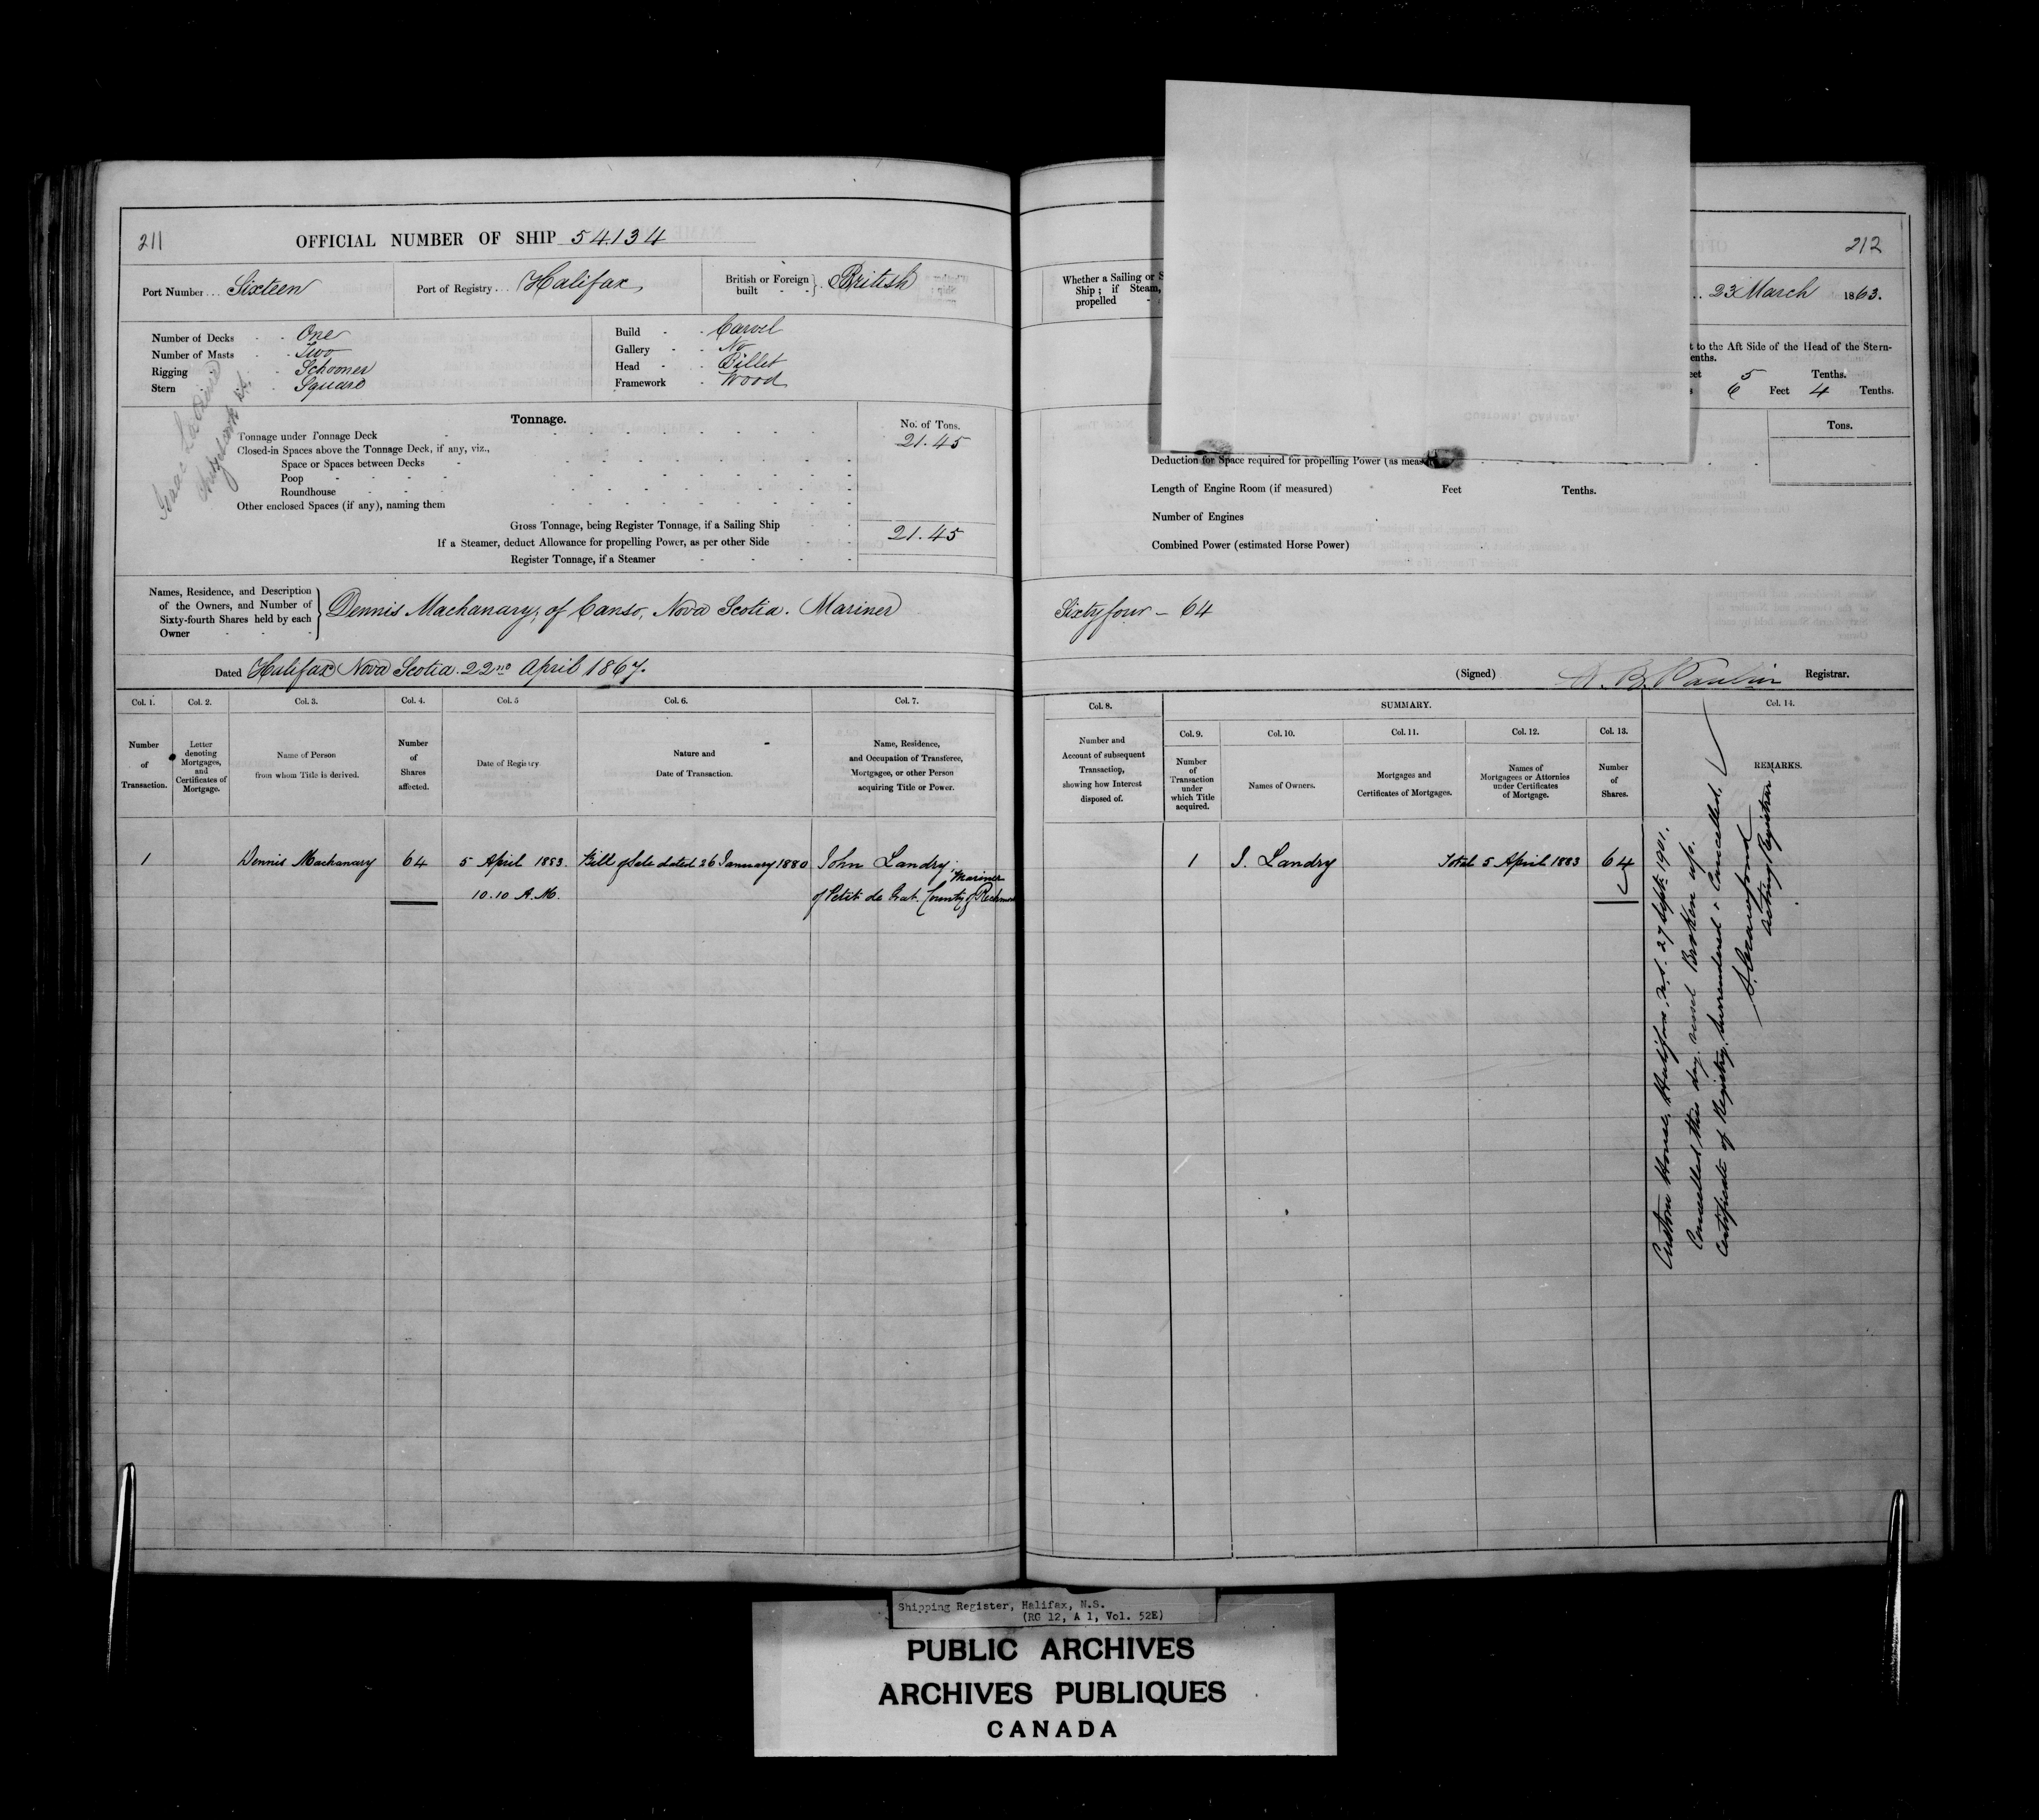 211
OFFICIAL NUMBER OF SHIP 54134
Port Number ... Sixteen
Port of Registry ... Halifax
British or Foreign built } British
Number of Decks One
Number of Masts Two
Rigging Schooner
Stern Square
Build Carvel
Gallery No
Head Billet
Framework Wood
Isaac
Tonnage.
No. of Tons.
Tonnage under Tonnage Deck 21.45
Closed-in Spaces above the Tonnage Deck, if any, viz.,
Space or Spaces between Decks
Poop
Roundhouse
Other enclosed Spaces (if any), naming them
Gross Tonnage, being Register Tonnage, if a Sailing Ship 21.45
If a Steamer, deduct Allowance for propelling Power, as per other Side
Register Tonnage, if a Steamer
Names, Residence, and Description of the Owners, and Number of Sixty-fourth Shares held by each Owner } Dennis Machanary, of Canso, Nova Scotia. Mariner
Dated Halifax Nova Scotia. 22nd April 1867.
Col. 1. Col. 2. Col. 3. Col. 4. Col. 5 Col. 6. Col. 7.
Number of Transaction.
Letter denoting Mortgages, and Certificates of Mortgage.
Name of Person from whom Title is derived.
Number of Shares affected.
Date of Registry.
Nature and Date of Transaction.
Name, Residence, and Occupation of Transferee, Mortgagee, or other Person acquiring Title or Power.
1 Dennis Machanary 64 5 April 1883. Bill of Sale dated 26 January 1880 John Landry, Mariner
10.10 A.M. of Petit de Grat. County of Richmond
212
Whether a Sailing or S
Ship; if Steam,
propelled
.. 23 March 1863.
t to the Aft Side of the Head of the Stern-
enths.
eet 5 Tenths.
s 6 Feet 4 Tenths.
Tons.
Deduction for Space required for propelling Power (as meas
Length of Engine Room (if measured) Feet Tenths.
Number of Engines
Combined Power (estimated Horse Power)
Sixty four - 64
(Signed) Registrar.
Col. 8.
SUMMARY.
Col. 14.
Col. 9. Col. 10. Col. 11. Col. 12. Col. 13.
Number and Account of subsequent Transaction, showing how Interest disposed of.
Number of Transaction under which Title acquired.
Names of Owners.
Mortgages and Certificates of Mortgages.
Names of Mortgagees or Attornies under Certificates of Mortgage.
Number of Shares.
REMARKS.
1 J. Landry Total 5 April 1883 64
Custom House, Halifax, N.S. 27 Sept. 1901.
Cancelled this day, vessel Broken up.
Certificate of Registry surrendered & Cancelled.
Acting Registrar
Shipping Register, Halifax, N.S.
(RG 12, A 1, Vol. 52E)
PUBLIC ARCHIVES
ARCHIVES PUBLIQUES
CANADA